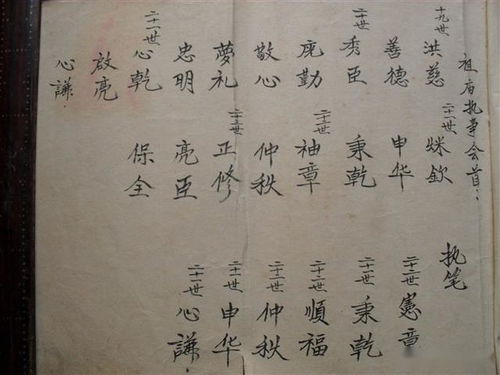 祖庙执事会首：
十九世 洪慈
善德
二十世 秀臣
勤
敬心
夢礼
忠明
二十一世 心乾
啟亮
心謙.
二十一世 欽
申华
秉乾
二十二世 袖章
仲秩
二十二世 正修
亮臣
保全
执笔
二十二世 憲章
二十一世 秉乾
二十二世 順福
二十一世 仲秩
二十一世 申华
二十一世 心謙.